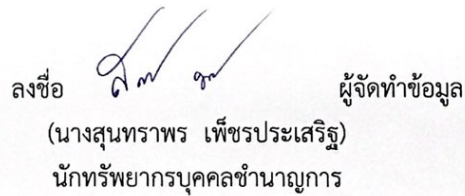 ลงชื่อ ผู้จัดทำข้อมูล
(นางสุนทราพร เพ็ชรประเสริฐ)
นักทรัพยากรบุคคลชำนาญการ